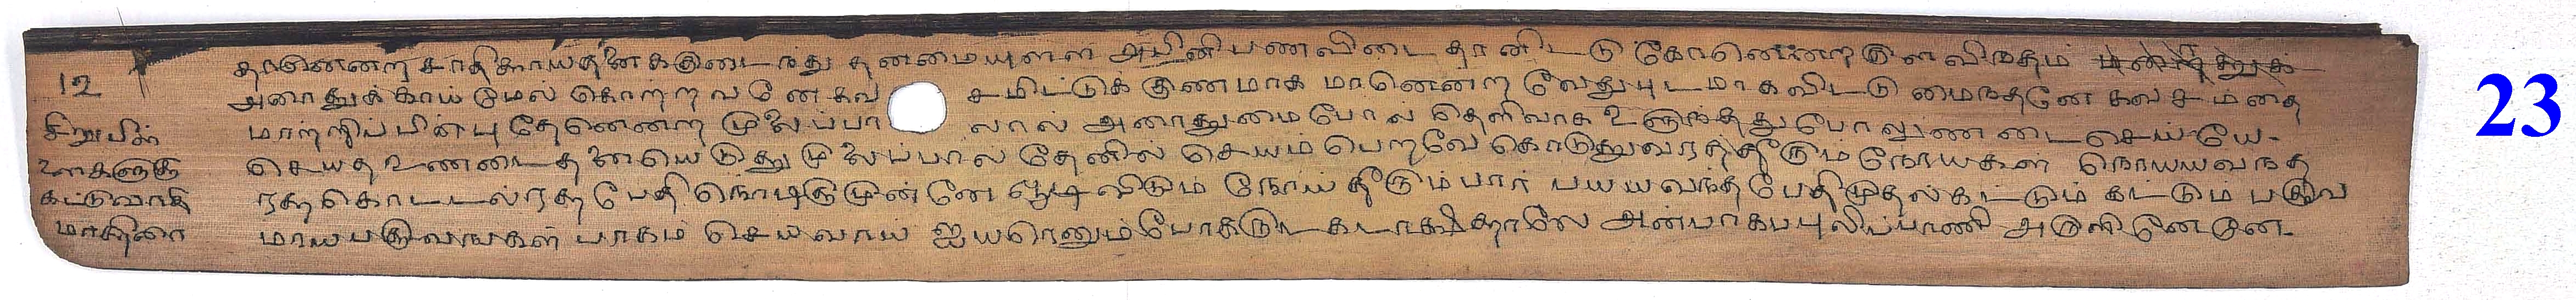 12
சிறுபிள்
ளைகளுகு
கட்டுவாகி
மாகிரை
தானென்ற சாதிகாயதனைககுடைநது தனமையுளள அபினியணவிடை தானிடடு கோனென்ற
அரைதுக்காய் மேல் கொற்றவனே கவசமிட்டுக் குணமாக மானென்ற வேதுபுடமாகவிட்டு மைநதனே கவசமதை
மாற்றிப்பின்பு தேனென்ற முலைப்பாலால் அரைதுமைபோல் தெளிவாக உளுந்தது போலுணடைசெய்யே
செயத உணடைதனையெடுதுமுலைப்பால் தேனில் செயம்பெறவே கொடுதுவரத்தீரும் நோயகள் நொயயவநத
ரதகொடடல்ரத பேதி நொடிகுமுன்னே ஓடிவிடும் நோய் தீரும்பார் பயயவந்த பேதிமுதல்கட்டும் கட்டும் பகுவ
மாயபகுவஙகள் பாகம் செயவாய் ஐயரெனும்போகருட கடாக்ஷத்தாலே அன்பாகபபுலிப்பாணி அருளினேனே
23